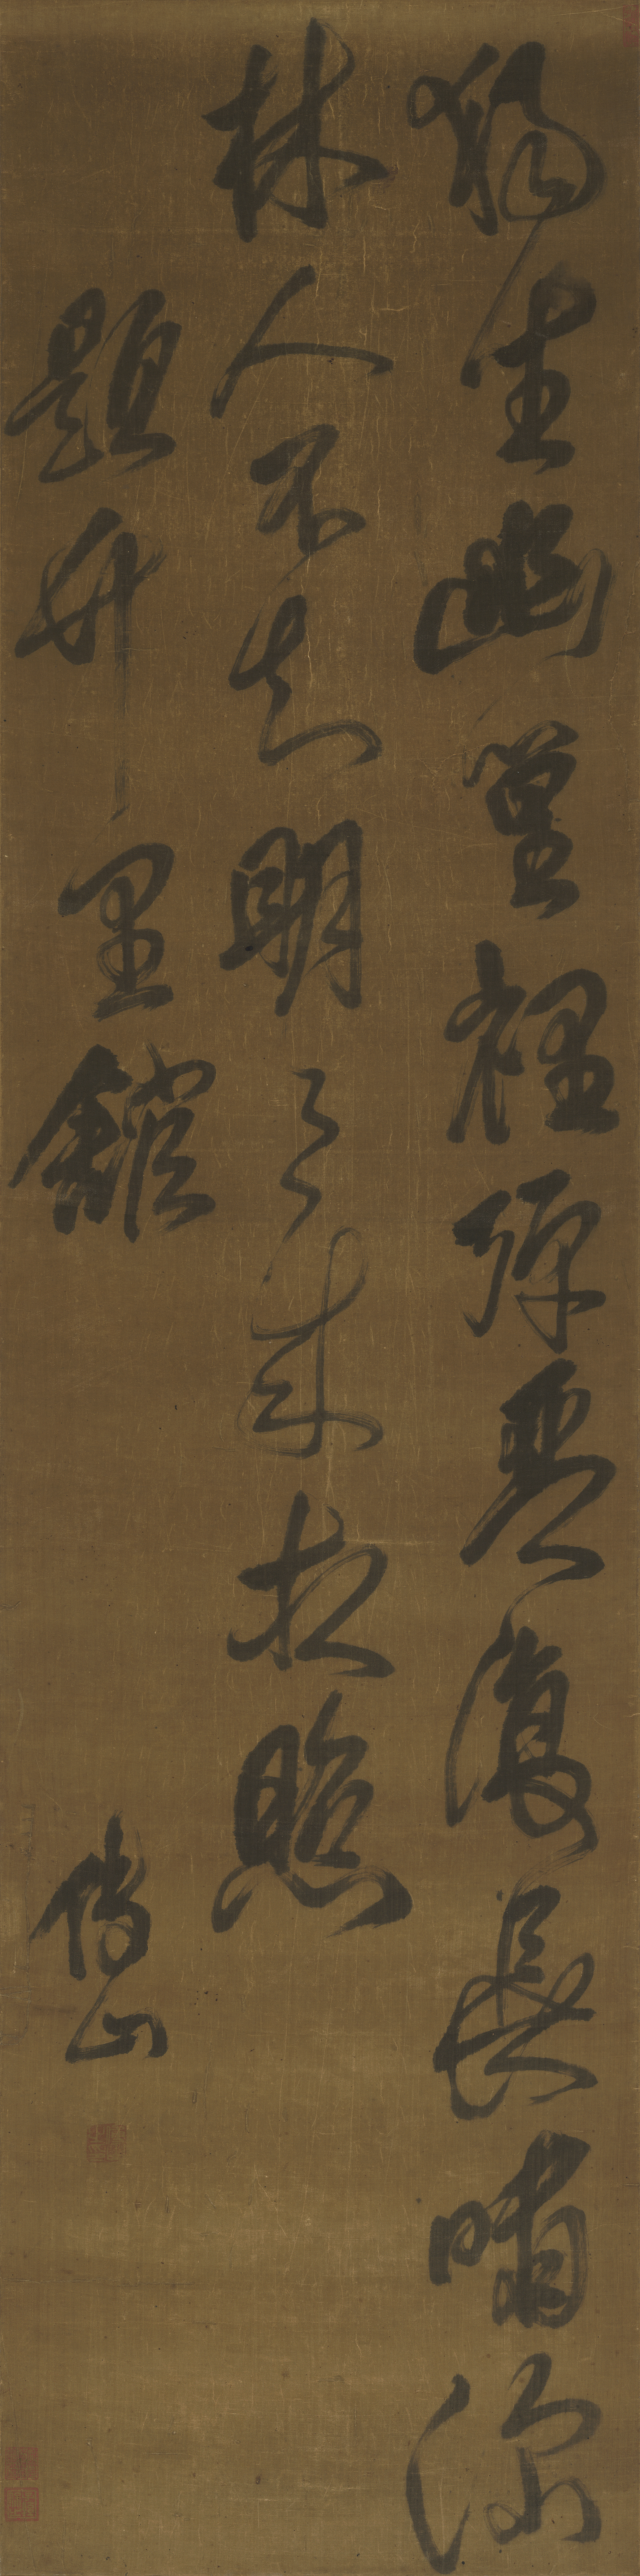 獨坐幽篁裡彈琴復長嘯深
林人不知明〻來相照
題竹里館
傅山